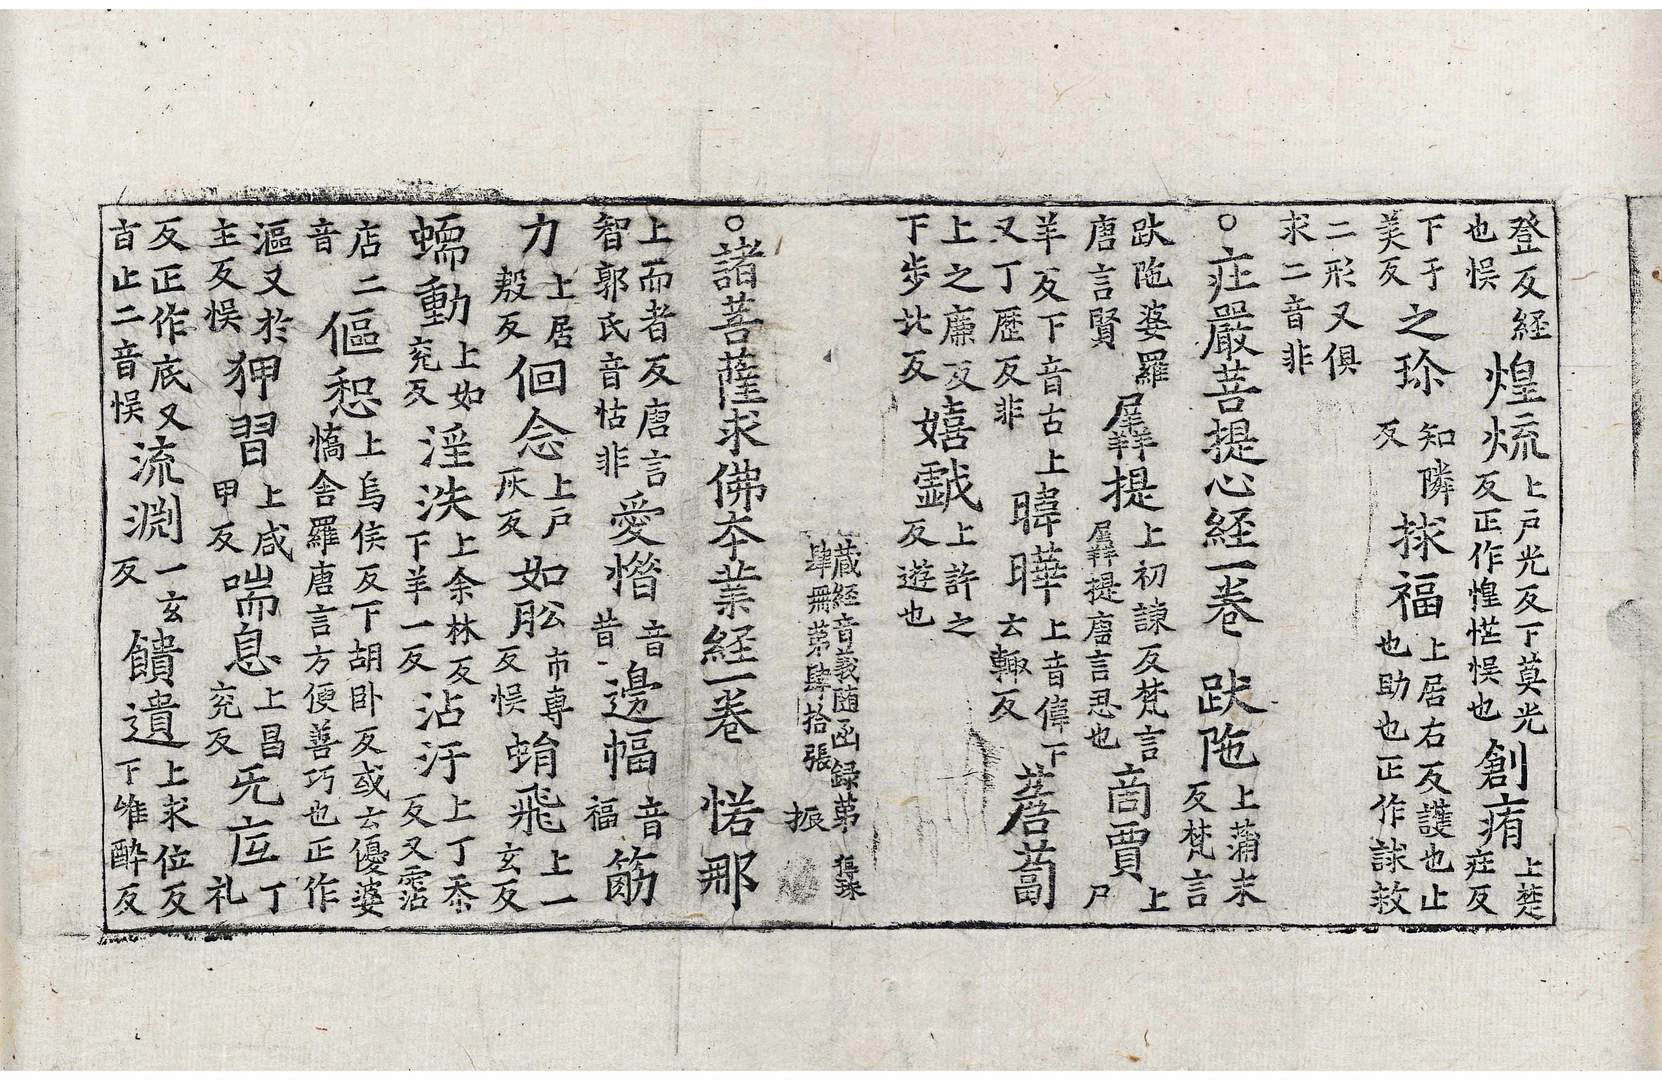 登反経也悮煌㷌上戸光反下莫光反正作惶恾悮也創痏上楚疰反
下于美反之珎知隣反捄福上居右反護也止也助也正作䛔救
二形又俱求二音非
○疰嚴菩提心経一卷　跋陁上蒲末反梵言
跋陁婆羅唐言賢羼提上初諫反梵言羼提唐言忍也商賈上尸
羊反下音古上又丁歷反非暐曄上音偉下云輙反薝蔔
上之廉反又下步北反嬉戱上許之反遊也
藏経音義随函録第
肆冊第肆拾張　振
○諸菩薩求佛夲業経一卷　惹那
上而者反唐言智郭氏音怙非愛憯音昔邊幅音福筋
力上居殷反佪念上戸灰反如肦市専反悮蜎飛上一玄反
蠕動上如兖反淫泆上余林反下羊一反沾汙上丁忝反又霑
店二音傴惒上烏侯反下胡卧反或云優婆憍舍羅唐言方便善巧也正作
漚又於主反悮狎習上咸甲反喘息上昌兖反旡㡳丁礼
反正作底又㫖止二音悮流渊一玄反饋遺上求位反下惟醉反